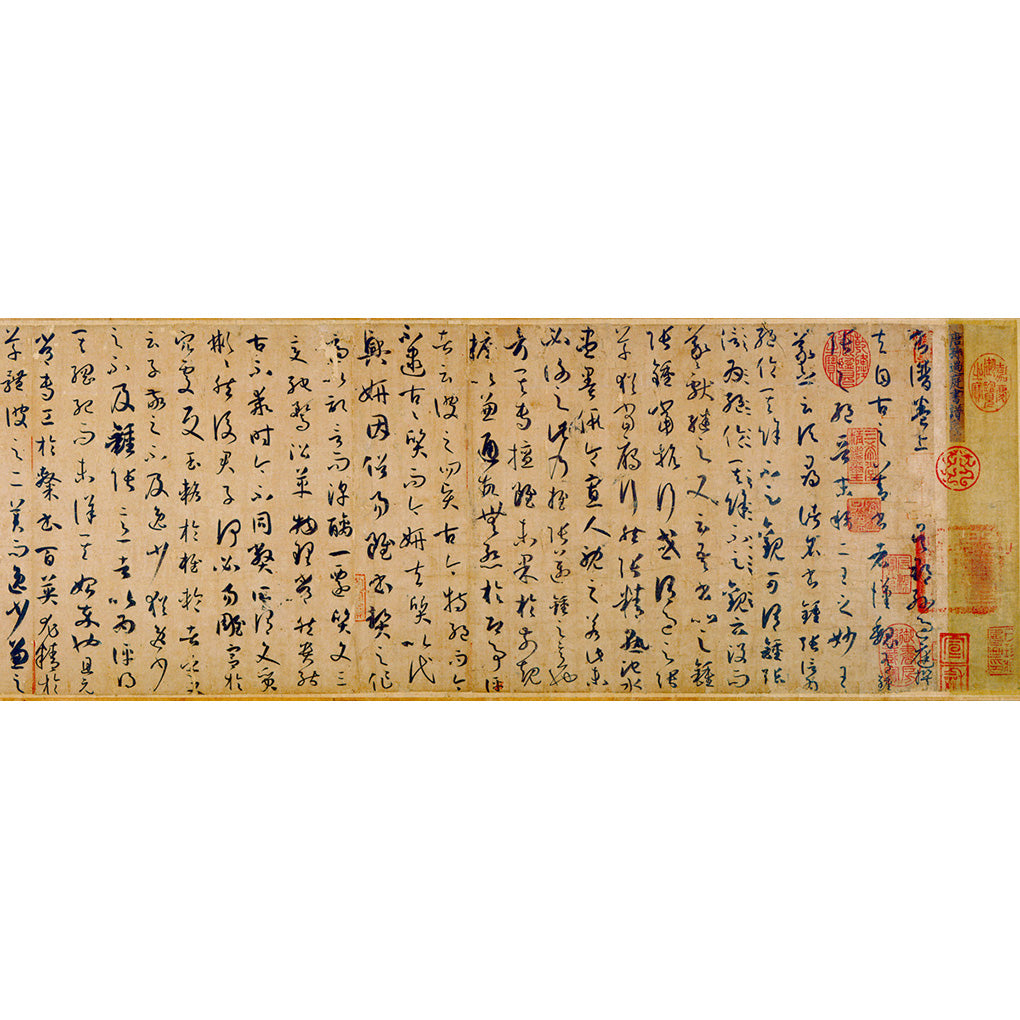 唐孫過庭書譜
書譜卷上 吳郡孫過庭撰
夫自古之善書者漢魏有鍾
張之絕晉末稱二王之妙王
羲之云頃尋諸名書鍾張信為
絕倫其餘不足觀可謂鍾張
信為絕倫其餘不足觀云沒而
羲獻繼之又云吾書比之鍾
張鍾當抗行或謂過之張
草猶當鴈行然張精熟池水
盡墨假令寡人耽之若此未
必謝之此乃推張邁鍾之意也
考其專擅雖未果於前規
摭以兼通故無慙於即事評
者云彼之四賢古今特絕而今
不逮古古質而今妍夫質以代
興妍因俗易雖書契之作
適以記言而淳醨一遷質文三
變馳騖沿革物理常然貴能
古不乖時今不同弊所謂文質
彬彬然後君子何必易雕宮於
穴處反玉輅於椎輪者乎又
云子敬之不及逸少猶逸少
之不及鍾張意者以為評得
其綱紀而未詳其始卒也且元
常專工於隸書百英尤精於
草體彼之二美而逸少兼之
宣和
御書房